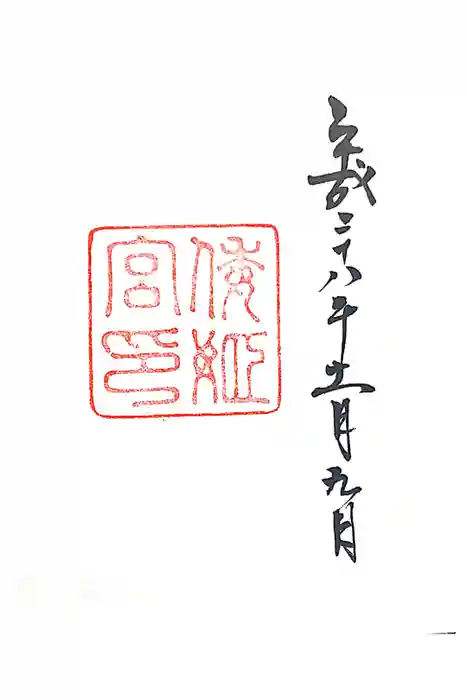 平成二十八年十一月九日
倭姫
宮印